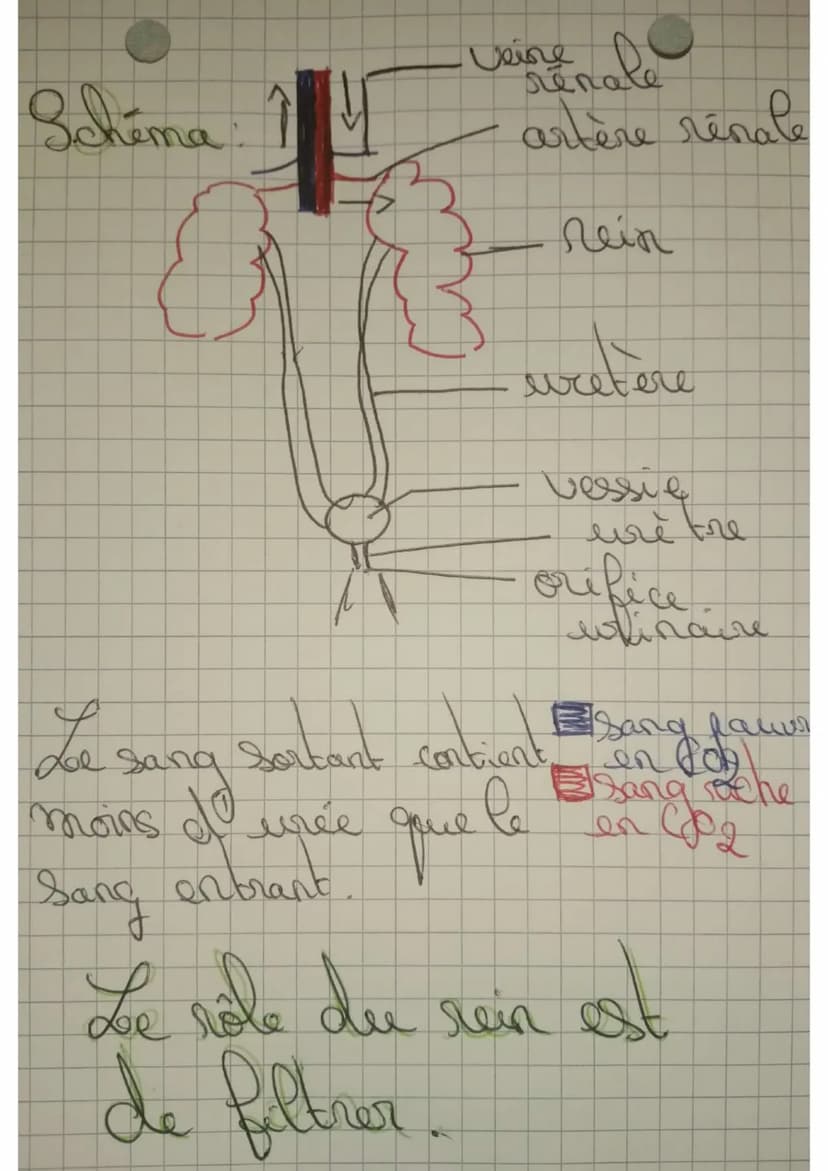 Schéma :
veine
rénale
artère rénale
rein
uretère
vessie
urètre
orifice
urinaire
Le sang sortant contient
moins d'urée que le
sang entrant.
sang pauvr
en
sang riche
en
Le rôle du rein est
de filtrer.